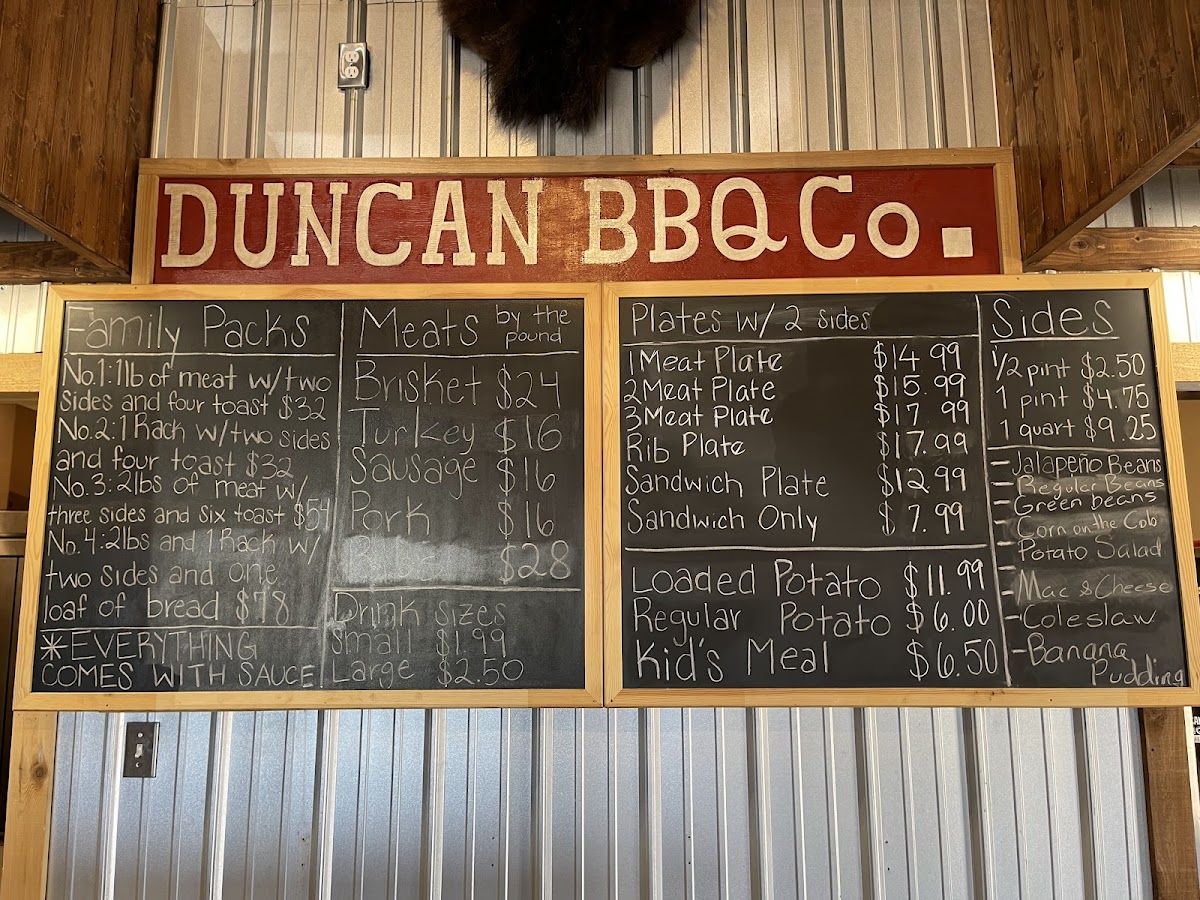 DUNCAN BBQ Co.
Family Packs
No.1:1lb of meat w/two
sides and four toast $32
No.2:1 Rack w/two sides
and four toast $32
No.3:2lbs of meat w/
three sides and six toast $54
No.4:2lbs and 1 Rack w/
two sides and one
loaf of bread $78
*EVERYTHING
COMES WITH SAUCE
Meats by the pound
Brisket $24
Turkey $16
Sausage $16
Pork $16
Ribs $28
Drink sizes
Small $1.99
Large $2.50
Plates w/ 2 sides
1 Meat Plate $14.99
2 Meat Plate $15.99
3 Meat Plate $17.99
Rib Plate $17.99
Sandwich Plate $12.99
Sandwich Only $7.99
Loaded Potato $11.99
Regular Potato $6.00
Kid's Meal $6.50
Sides
1/2 pint $2.50
1 pint $4.75
1 quart $9.25
- Jalapeño Beans
- Regular Beans
- Green beans
- Corn on the Cob
- Potato Salad
- Mac & Cheese
- Coleslaw
- Banana
Pudding